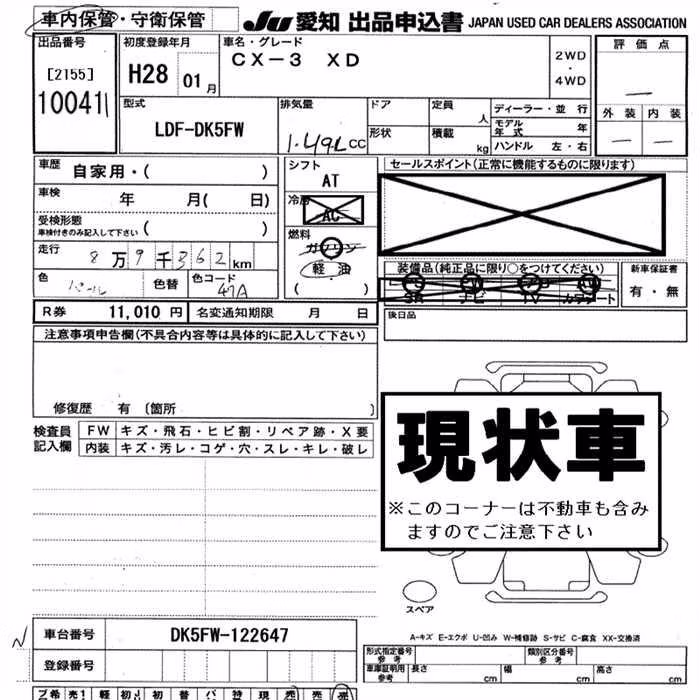 車内保管・守衛保管
JU 愛知 出品申込書 JAPAN USED CAR DEALERS ASSOCIATION
出品番号
[2155]
10041
初度登録年月
H28 01月
車名・グレード
CX-3 XD
2WD
・
4WD
評価点
—
外装 内装
— —
型式
LDF-DK5FW
排気量
1.49L CC
ドア
形状
定員
人
積載
kg
ディーラー・並行
モデル年式 年
ハンドル 左・右
車歴 自家用・( )
車検 年 月( 日)
受検形態
車検付きのみ記入して下さい ( )
走行 8万9千362km
色
パール
色替
色コード
47A
シフト
AT
冷房
AC
燃料
ガソリン
軽油
( )
セールスポイント(正常に機能するものに限ります)
装備品(純正品に限り○をつけてください)
SR ナビ TV カワシート
新車保証書
有・無
後日品
R券 11,010円 名変通知期限 月 日
注意事項申告欄(不具合内容等は具体的に記入して下さい)
修復歴 有 〔箇所 〕
検査員記入欄
FW キズ・飛石・ヒビ割・リペア跡・X要
内装 キズ・汚レ・コゲ・穴・スレ・キレ・破レ
現状車
※このコーナーは不動車も含み
ますのでご注意下さい
スペア
A-キズ E-エクボ U-凹み W-補修跡 S-サビ C-腐食 XX-交換済
N
車台番号 DK5FW-122647
登録番号
形式指定番号
参考
類別区分番号
参考
車庫証明用
参考
長さ cm
幅 cm
高さ cm